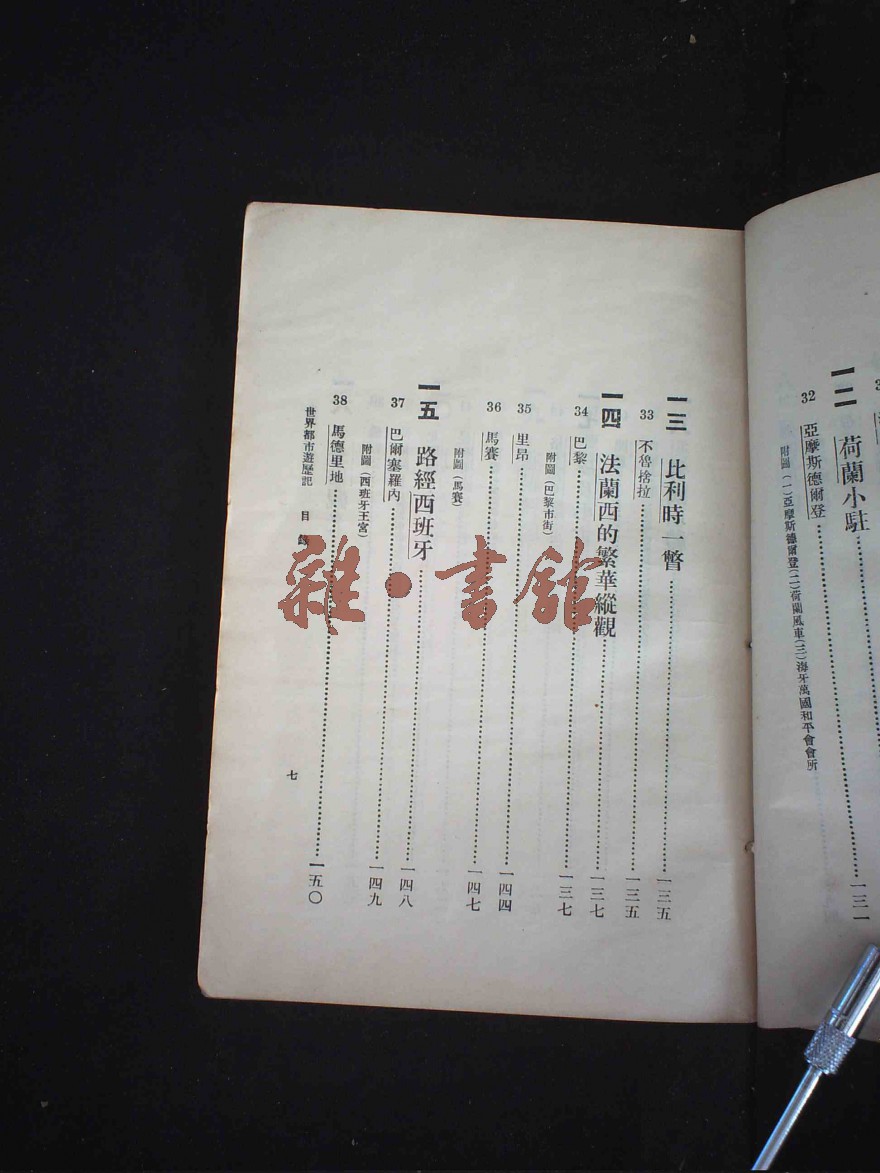 一二 荷蘭小駐……一三一
32 亞摩斯德爾登
附圖(一)亞摩斯德爾登(二)荷蘭風車(三)海牙萬國和平會會所
一三 比利時一瞥……一三五
33 不魯捨拉……一三五
一四 法蘭西的繁華縱觀……一三七
34 巴黎……一三七
附圖(巴黎市街)
35 里昂……一四四
36 馬賽……一四七
附圖(馬賽)
一五 路經西班牙……一四八
37 巴爾塞羅內……一四九
附圖(西班牙王宮)
38 馬德里地……一五〇
世界都市遊歷記 目錄
七
雜·書館